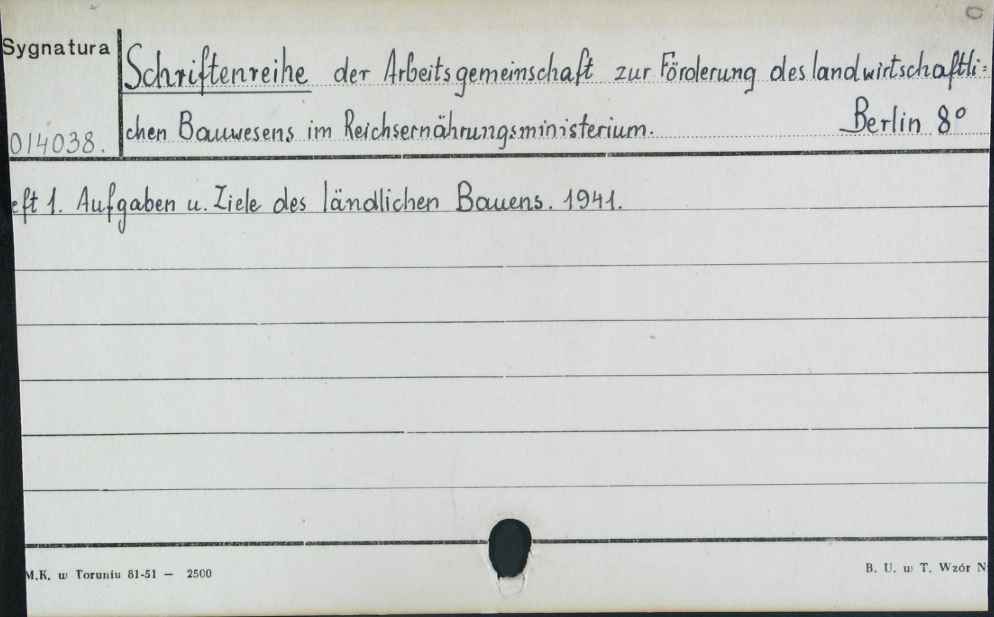 Sygnatura
Schriftenreihe der Arbeitsgemeinschaft zur Förderung des landwirtschaftli=
014038. chen Bauwesens im Reichsernährungsministerium. Berlin 8°
eft 1. Aufgaben u. Ziele des ländlichen Bauens. 1941.
M.K. w Toruniu 81-51 — 2500
B. U. w T. Wzór N